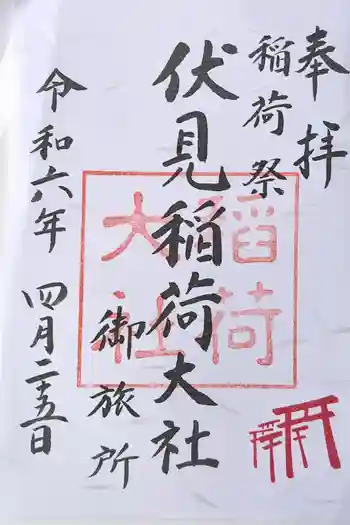 奉拝
稲荷祭
伏見稲荷大社
御旅所
令和六年 四月二十五日
稲荷
大社